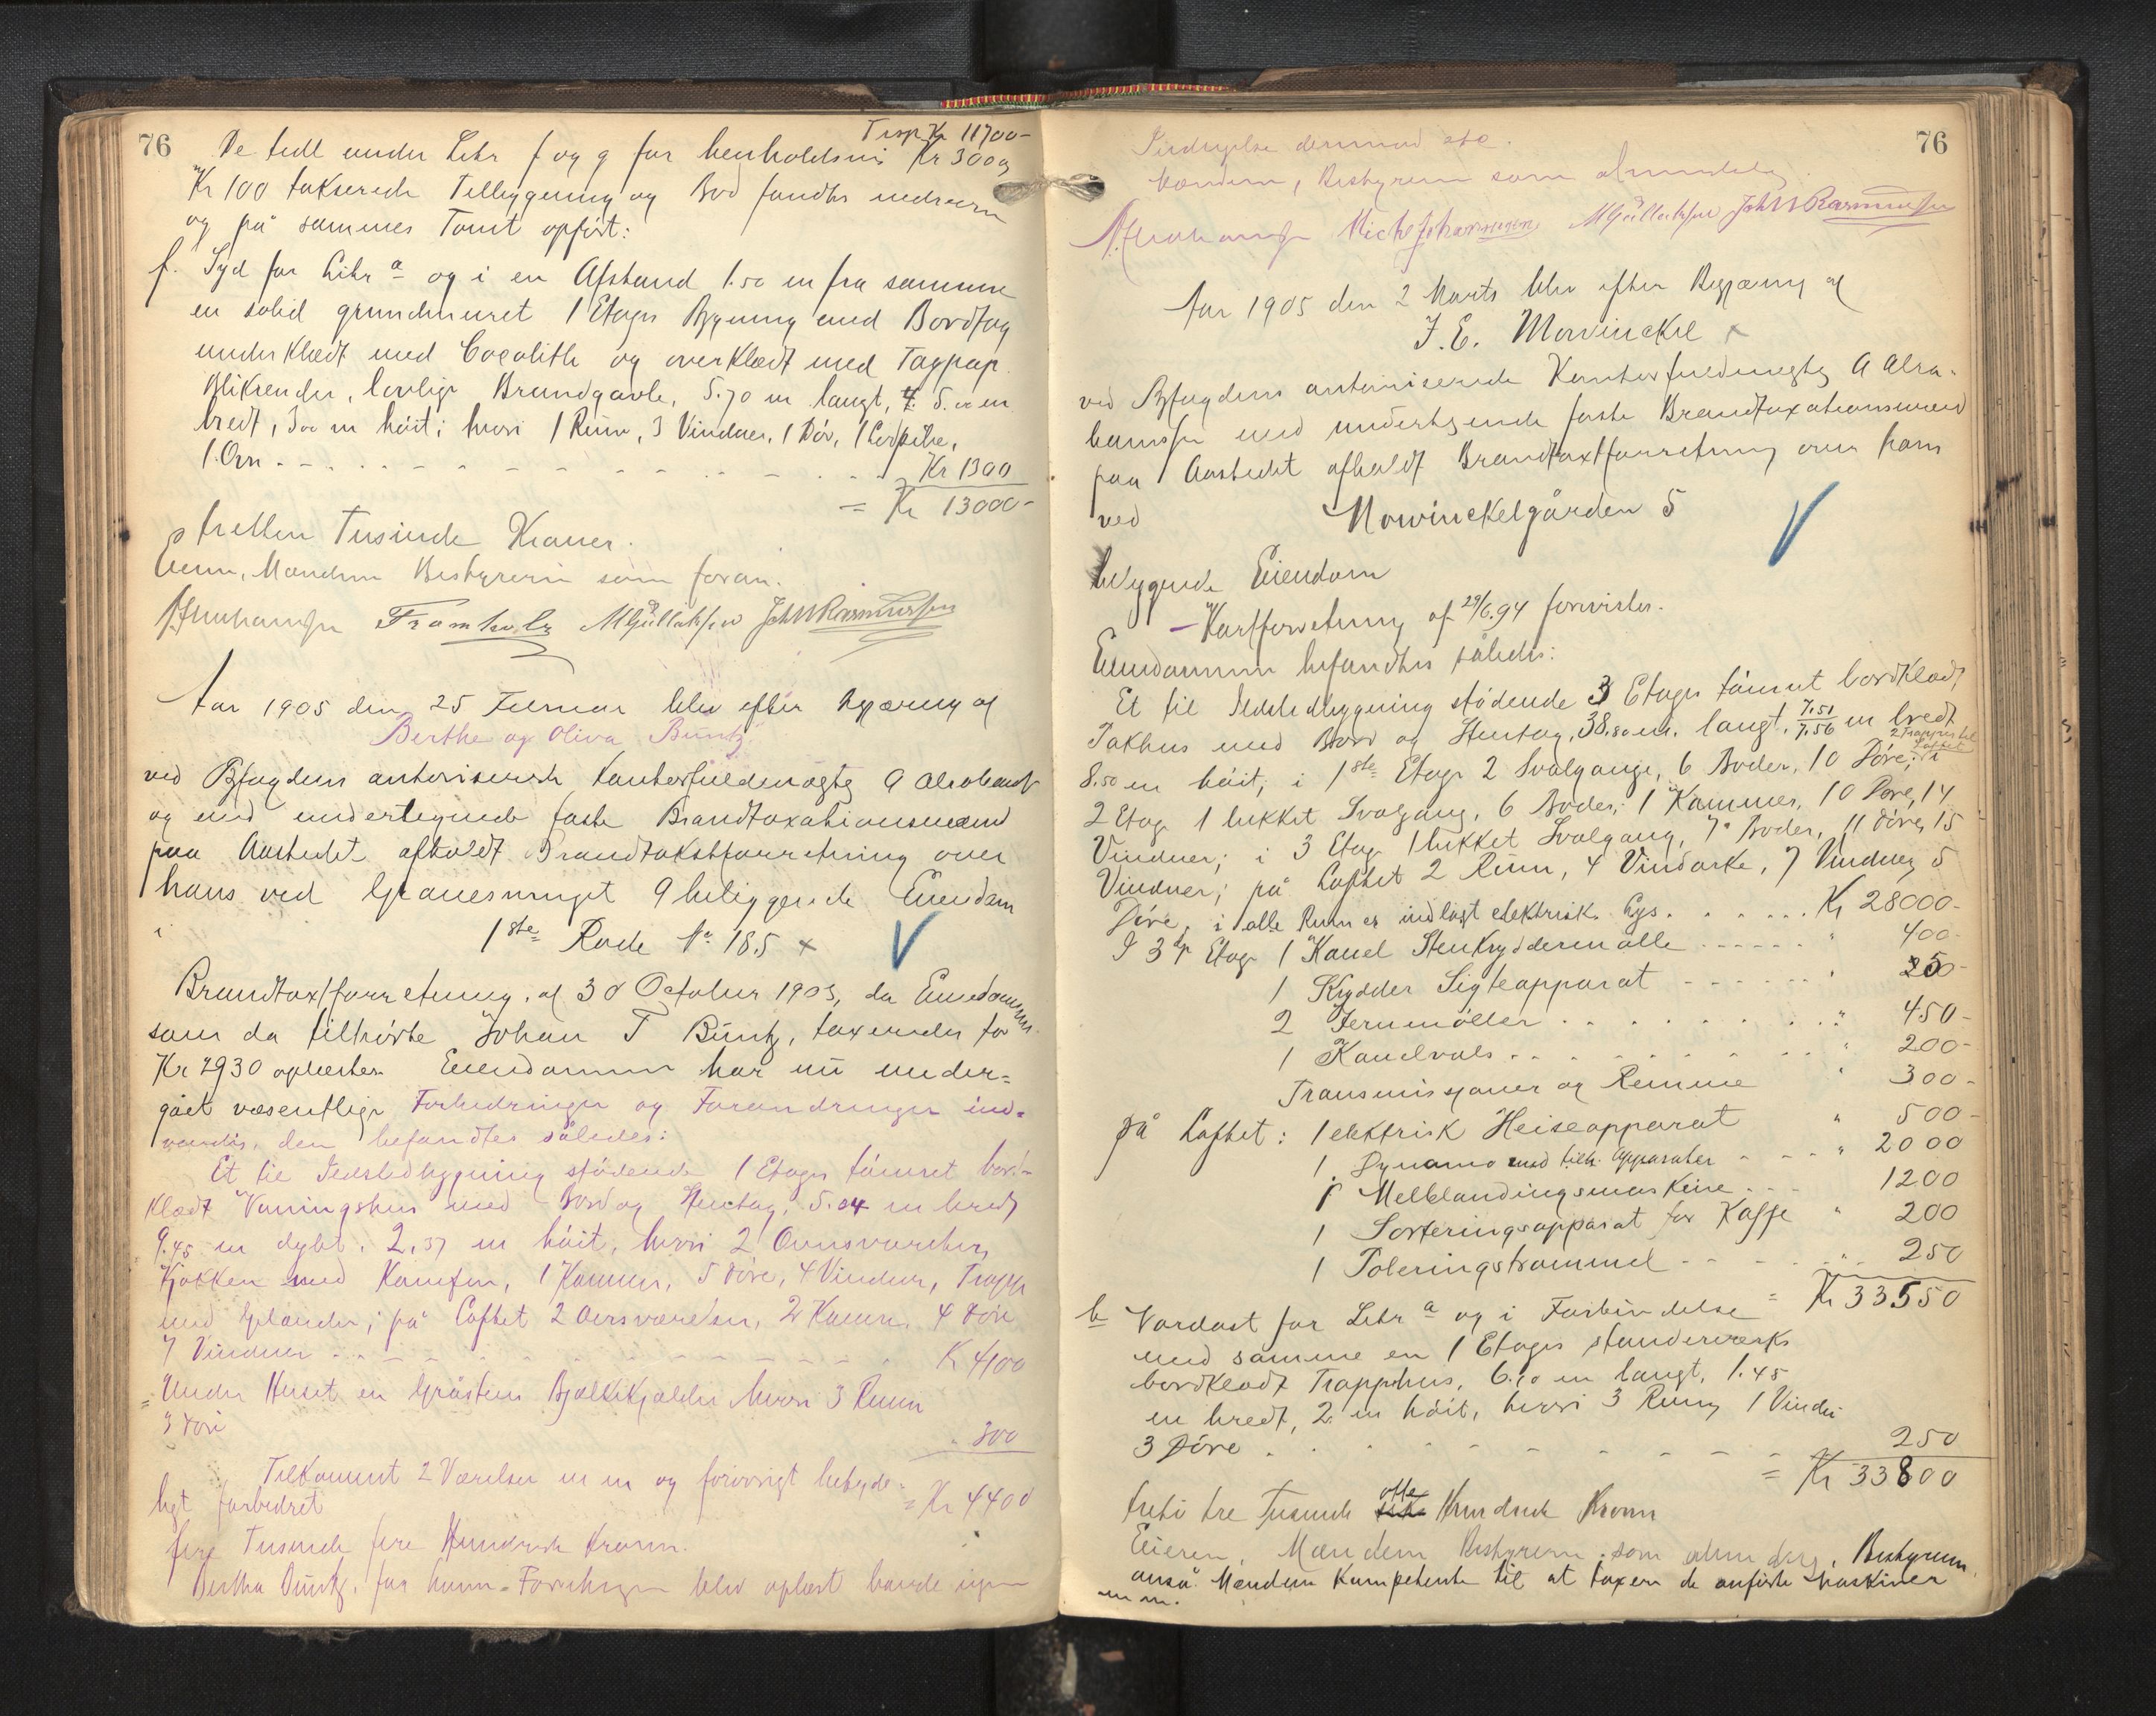 76
Trsp Kr 11700-
De tidl under Litr f og g for henholdsvis Kr 300 og
Kr 100 takserede Tilbygning og Bod fandtes nedrevne
og på sammes Tomt opført:
f. Syd for Litr a og i en Afstand 1.50 m fra samme
en solid grundmuret 1 Etages Bygning med Bordtag
underklædt med Cocolith og overklædt med Tagpap
Blikrender, lovlige Brandgavle, 5.70 m langt, 5.00 m
bredt, 3.00 m höit; hvori 1 Rum, 3 Vinduer, 1 Dör,
1 Ovn - - - - Kr 1300
= Kr 13000-
tretten Tusinde Kroner.
Mændene Bestyreren som foran.
Aar 1905 den 25 Februar blev efter Begjæring af
Berthe og Oliva Büntz
ved Byfogdens autoriserede Kontorfuldmægtig A Abrahams
og med undertegnede faste Brandtaxationsmænd
paa Aastedet afholdt Brandtakstforretning over
hans ved 9 beliggende Eiendom
i
1ste Rode No 185 x
Brandtaxtforretning af 30 October 1903, da Eiendommen
som da tilhörte Johan T Büntz, taxeredes for
Kr 2930 oplæstes. Eiendommen har nu under=
gået væsentlige Forbedringer og Forandringer ind=
vendig, den befandtes således:
Et til Nedstedbygning stödende 1 Etages tömret bord-
klædt Vaaningshus med Bord og Stentag, 5.04 m bredt
9.45 m dybt, 2,37 m höit, hvori 2 Ovnsværelser,
Kjökken med Komfur, 1 Kammer, 5 Döre, 4 Vinduer, Trappe
med Gelænder; på Loftet 2 Ovnsværelser, 2 Kamre, 4 Döre
7 Vinduer - - - - Kr 4100
= Under Huset en Gråstens Bjælkekjælder hvori 3 Rum
3 Döre - 300
Tilkommet 2 Værelser m m og forövrigt betyde-
ligt forbedret = Kr 4400
fire Tusinde fire Hundrede Kroner.
Bertha Büntz, for hvem Forretningen blev oplæst havde ingen
76
Indvendelse dermod etc.
Mændene, Bestyreren som almindelig.
Aar 1905 den 2 Marts blev efter Begjæring af
J. E. Mowinckel x
ved Byfogdens autoriserede Kontorfuldmægtig A Abra-
hamsen med undertegnede faste Brandtaxationsmænd
paa Aastedet afholdt Brandtaxtforretning over hans
ved Mowinckelgården 5
beliggende Eiendom
- Kartforretning af 29/6.94 forevistes.
Eiendommen befandtes således:
Et til Nedstedbygning stödende 3 Etages tömret bordklædt
Pakhus med Bord og Stentag, 38.80 m. langt, 7.51/7.56 m bredt
2 Trapper til Loftet
8.50 m höit, i 1ste Etage 2 Svalgange, 6 Boder, 10 Döre; i
2 Etage 1 lukket Svalgang, 6 Boder, 1 Kammer, 10 Döre, 14
Vinduer; i 3 Etage 1 lukket Svalgang, 7 Boder, 11 Döre, 15
Vinduer; på Loftet 2 Rum, 4 Vindarke, 7 Vinduer, 5
Döre, i alle Rum er indlagt elektrisk Lys. . . . . Kr 28000-
I 3de Etage 1 Kanel Stenkryddermölle - - - - " 400-
1 Krydder Sigteapparat - - - - " 250-
2 Jernmöller . . . . . " 450-
1 Kanelvals . . . . . " 200-
Transmissjoner og Remme " 300-
på Loftet: 1 elektrisk Heiseapparat " 500-
1 Dynamo med tilh. Apparater - - - " 2000
1 Melblandingsmaskine - - - 1200
1 Sorteringsapparat for Kaffe " 200
1 Poleringstrommel - - - - " 250
= Kr 33550
b Nordost for Litr a og i Forbindelse
med samme en 1 Etages standerværks
bordklædt Trappehus, 6.10 m langt, 1.45
m bredt, 2. m höit, hvori 3 Rum, 1 Vindu
3 Döre . - - - - 250
= Kr 33800
treti tre Tusinde otte Hundrede Kroner
Eieren, Mændene Bestyreren som almindelig, Bestyreren
anså Mændene Kompetente til at taxere de anförte Maskiner
m m.